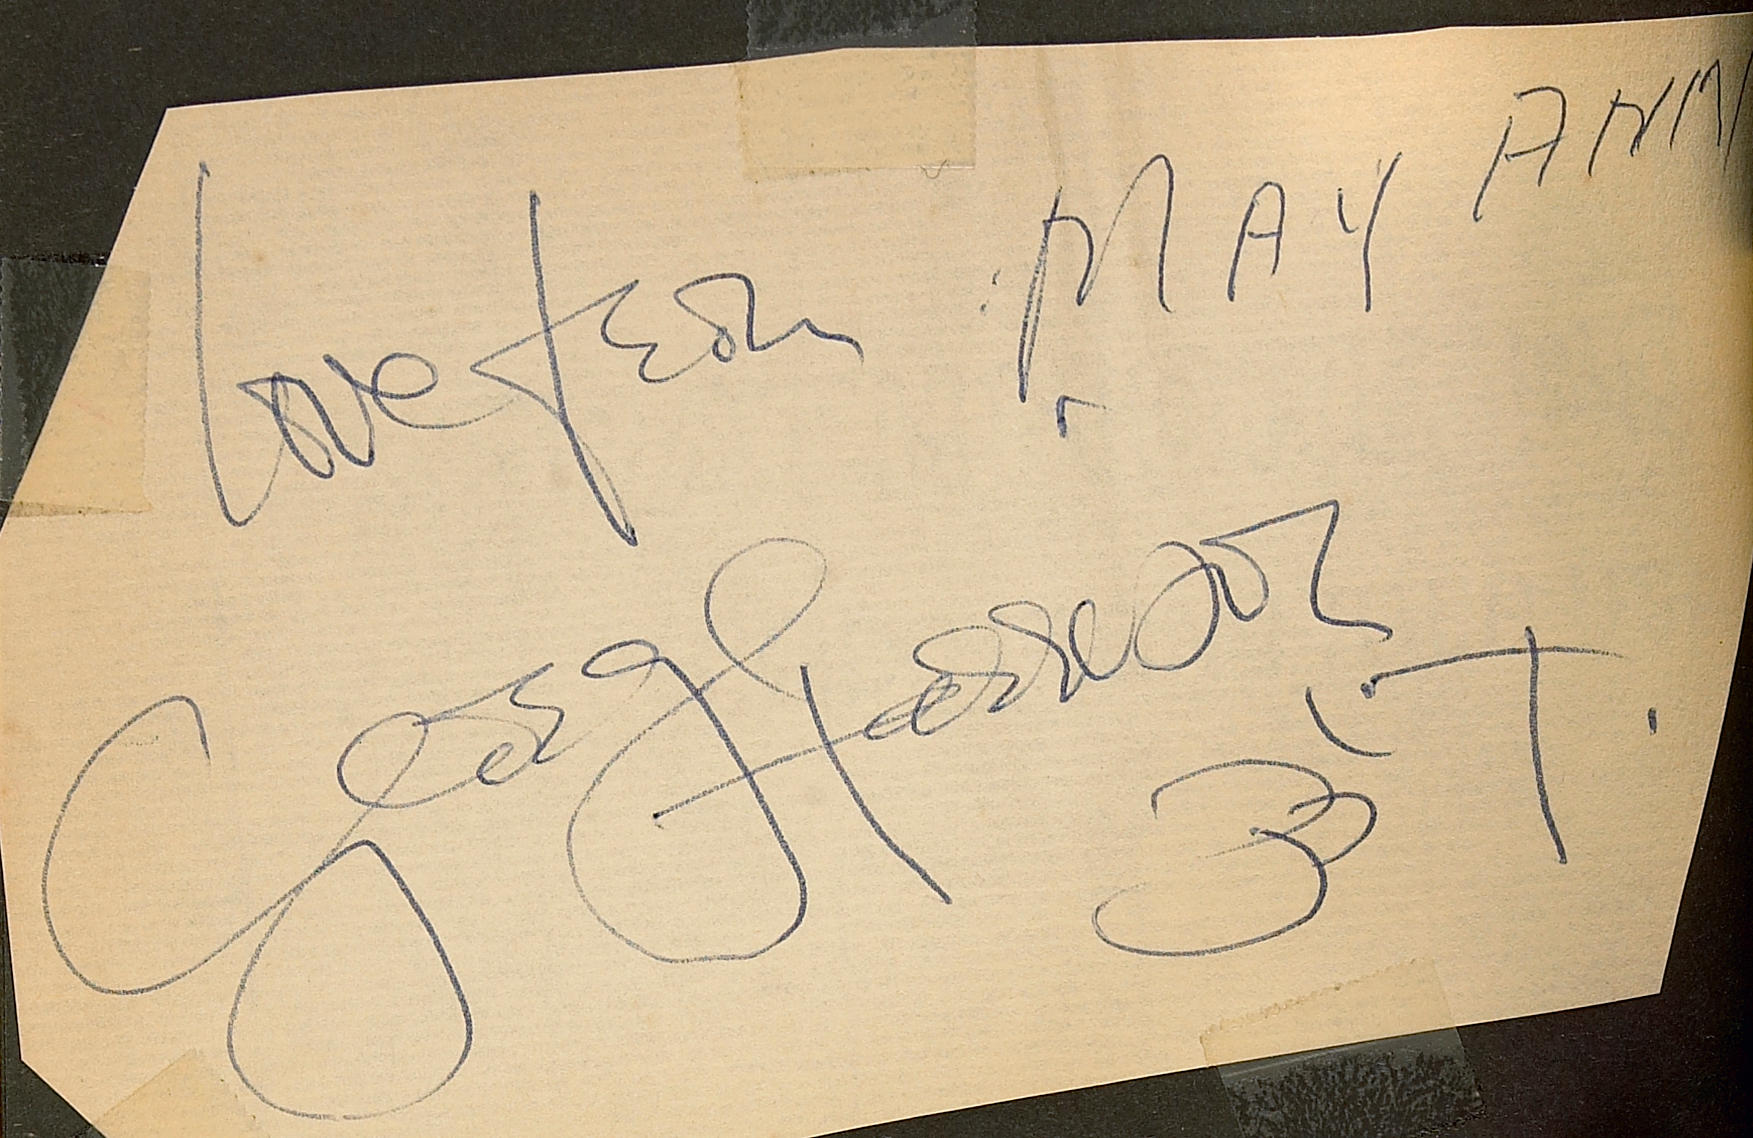 love from MAY ANN
George Harrison